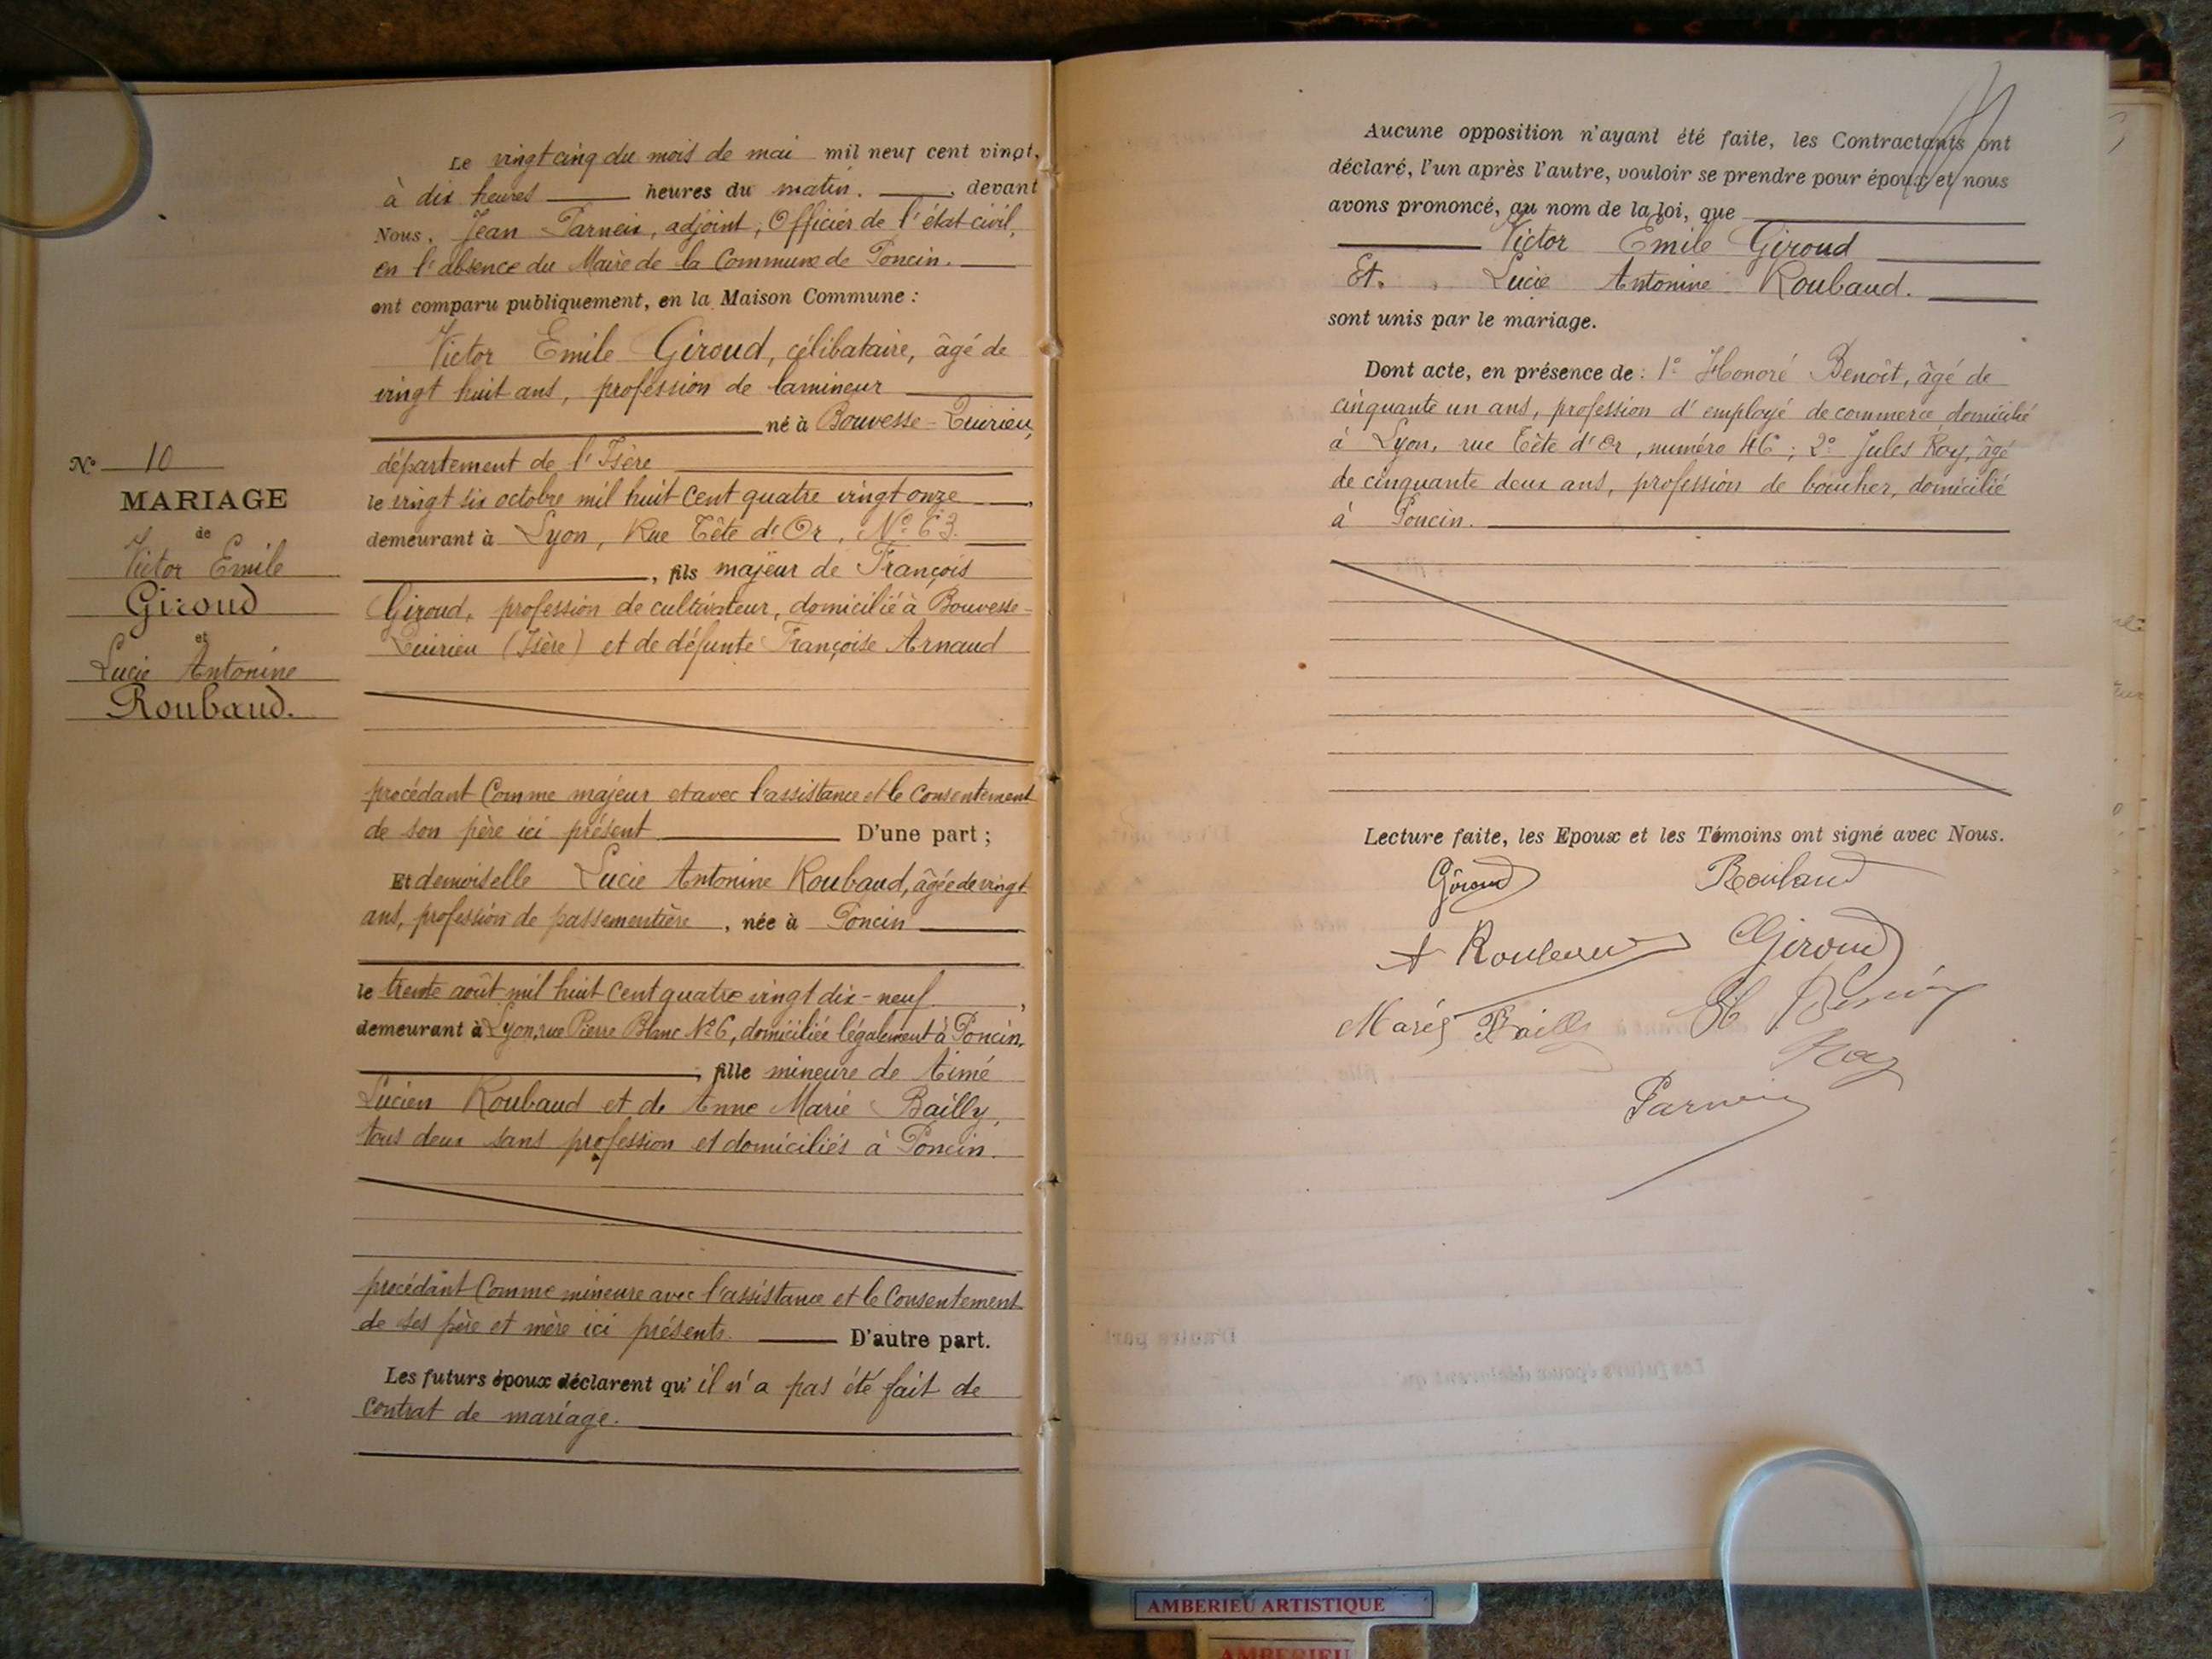 N° 10
MARIAGE
de
Victor Emile
Giroud
et
Lucie Antonine
Roubaud.
Le vingt cinq du mois de mai mil neuf cent vingt,
à dix heures heures du matin. , devant
Nous, Jean Parneix, adjoint, Officier de l'état civil,
en l'absence du Maire de la Commune de Poncin.
ont comparu publiquement, en la Maison Commune :
Victor Emile Giroud, célibataire, âgé de
vingt huit ans, profession de lamineur
né à Bouvesse-Quirieu,
département de l'Isère
le vingt six octobre mil huit cent quatre vingt onze ,
demeurant à Lyon, Rue Tête d'Or, N° 63.
, fils majeur de François
Giroud, profession de cultivateur, domicilié à Bouvesse-
Quirieu (Isère) et de défunte Françoise Arnaud
procédant comme majeur et avec l'assistance et le consentement
de son père ici présent D'une part ;
Et demoiselle Lucie Antonine Roubaud, âgée de vingt
ans, profession de passementière , née à Poncin
le trente août mil huit cent quatre vingt dix-neuf ,
demeurant à Lyon, rue Pierre Blanc N° 6, domiciliée légalement à Poncin,
, fille mineure de Aimé
Lucien Roubaud et de Anne Marie Bailly,
tous deux sans profession et domiciliés à Poncin.
procédant comme mineure avec l'assistance et le consentement
de ses père et mère ici présents. D'autre part.
Les futurs époux déclarent qu'il n'a pas été fait de
contrat de mariage.
Aucune opposition n'ayant été faite, les Contractants ont
déclaré, l'un après l'autre, vouloir se prendre pour époux, et nous
avons prononcé, au nom de la loi, que
Victor Emile Giroud
Et. Lucie Antonine Roubaud.
sont unis par le mariage.
Dont acte, en présence de : 1° Honoré Benoît, âgé de
cinquante un ans, profession d'employé de commerce, domicilié
à Lyon, rue Tête d'Or, numéro 46 ; 2° Jules Roy, âgé
de cinquante deux ans, profession de boucher, domicilié
à Poncin.
Lecture faite, les Epoux et les Témoins ont signé avec Nous.
Giroud Roubaud
A Roubaud Giroud
Marie Bailly H Benoît
Roy
Parneix
AMBERIEU ARTISTIQUE
AMBERIEU